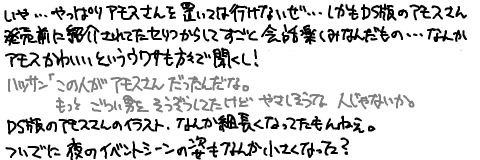 いや…やっぱりアモスさんを置いては行けないぜ…しかもDS版のアモスさん
発売前に紹介されてたセリフからしてすごく会話楽しみなんだもの…なんか
アモスかわいいというウワサも方々で聞くし!
ハッサン「この人がアモスさんだったんだな。
もっとごつい男をそうぞうしてたけどやさしそうな人じゃないか。
DS版のアモスさんのイラスト、なんか細長くなってたもんねぇ。
ついでに夜のイベントシーンの姿もなんか小さくなった?